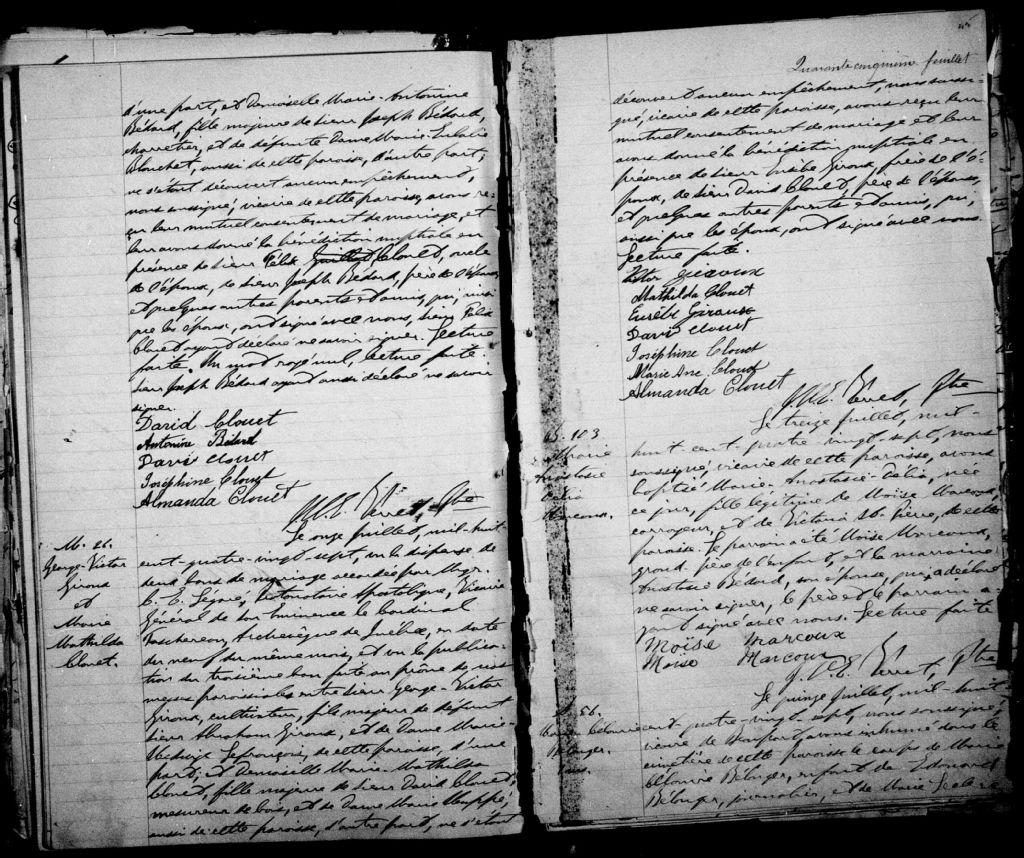 d'une part, et Demoiselle Marie-Antonine
Bédard, fille majeure de sieur Joseph Bédard,
charretier, et de défunte Dame Marie-Eulalie
Blanchet, aussi de cette paroisse, d'autre part;
ne s'étant découvert aucun empêchement,
nous soussigné, vicaire de cette paroisse, avons re-
çu leur mutuel consentement de mariage, et
leur avons donné la bénédiction nuptiale en
présence de sieur Félix Clouet, oncle
de l'époux, de sieur Joseph Bédard, père de l'épouse,
et quelques autres parents et amis, qui, ainsi
que les époux, ont signé avec nous, sieur Félix
Clouet ayant déclaré ne savoir signer. Lecture
faite. Un mot rayé nul, lecture faite.
sieur Joseph Bédard ayant aussi déclaré ne savoir
signer.
David Clouet
Antonine Bédard
David Clouet
Joséphine Clouet
Almanda Clouet
J.U.E. Verret, Ptre
M. 26.
George-Victor
Giroux
et
Marie
Mathilda
Clouet.
Le onze juillet, mil-huit-
cent-quatre-vingt-sept, vu la dispense de
deux bans de mariage accordée par Mgr.
C. E. Légaré, Protonotaire Apostolique, Vicaire
Général de Son Eminence le Cardinal
Taschereau, Archevêque de Québec, en date
du neuf du même mois, et vu la publica-
tion du troisième ban faite au prône de nos
messes paroissiales entre sieur George-Victor
Giroux, cultivateur, fils majeur de défunt
sieur Abraham Giroux, et de Dame Marie-
Hedwige Lefrançois, de cette paroisse, d'une
part; et Demoiselle Marie-Mathilda
Clouet, fille majeure de sieur David Clouet,
mesureur de bois, et de Dame Marie Huppé,
aussi de cette paroisse, d'autre part, ne s'étant
Quarante cinquième feuillet
découvert aucun empêchement, nous soussi-
gné, vicaire de cette paroisse, avons reçu leur
mutuel consentement de mariage et leur
avons donné la bénédiction nuptiale en
présence de sieur Eusèbe Giroux, frère de l'é-
poux, de sieur David Clouet, père de l'épouse,
et quelques autres parents et amis, qui,
ainsi que les époux, ont signé avec nous.
Lecture faite.
Victor Giroux
Mathilda Clouet
Eusèbe Giroux
David Clouet
Joséphine Clouet
Marie Anne Clouet
Almanda Clouet
J.U.E. Verret, Ptre
B. 103.
Marie
Anastasie
Célia
Marcoux.
Le treize juillet, mil-
huit-cent-quatre-vingt-sept, nous
soussigné, vicaire de cette paroisse, avons
baptisé Marie-Anastasie-Célia, née
ce jour, fille légitime de Moïse Marcoux,
corroyeur, et de Victoria St-Pierre, de cette
paroisse. Le parrain a été Moïse Marcoux,
grand-père de l'enfant, et la marraine
Anastasie Bédard, son épouse, qui a déclaré
ne savoir signer, le père et le parrain a-
yant signé avec nous. Lecture faite
Moïse Marcoux
Moise Marcoux
J.U.E. Verret, Ptre
S. 56.
Marie Clourie
Bélanger
Le quinze juillet, mil-huit-
cent-quatre-vingt-sept, nous soussigné,
vicaire de Beauport, avons inhumé dans le
cimetière de cette paroisse le corps de Marie
Bélanger, enfant de Edouard
Bélanger, journalier, et de Marie